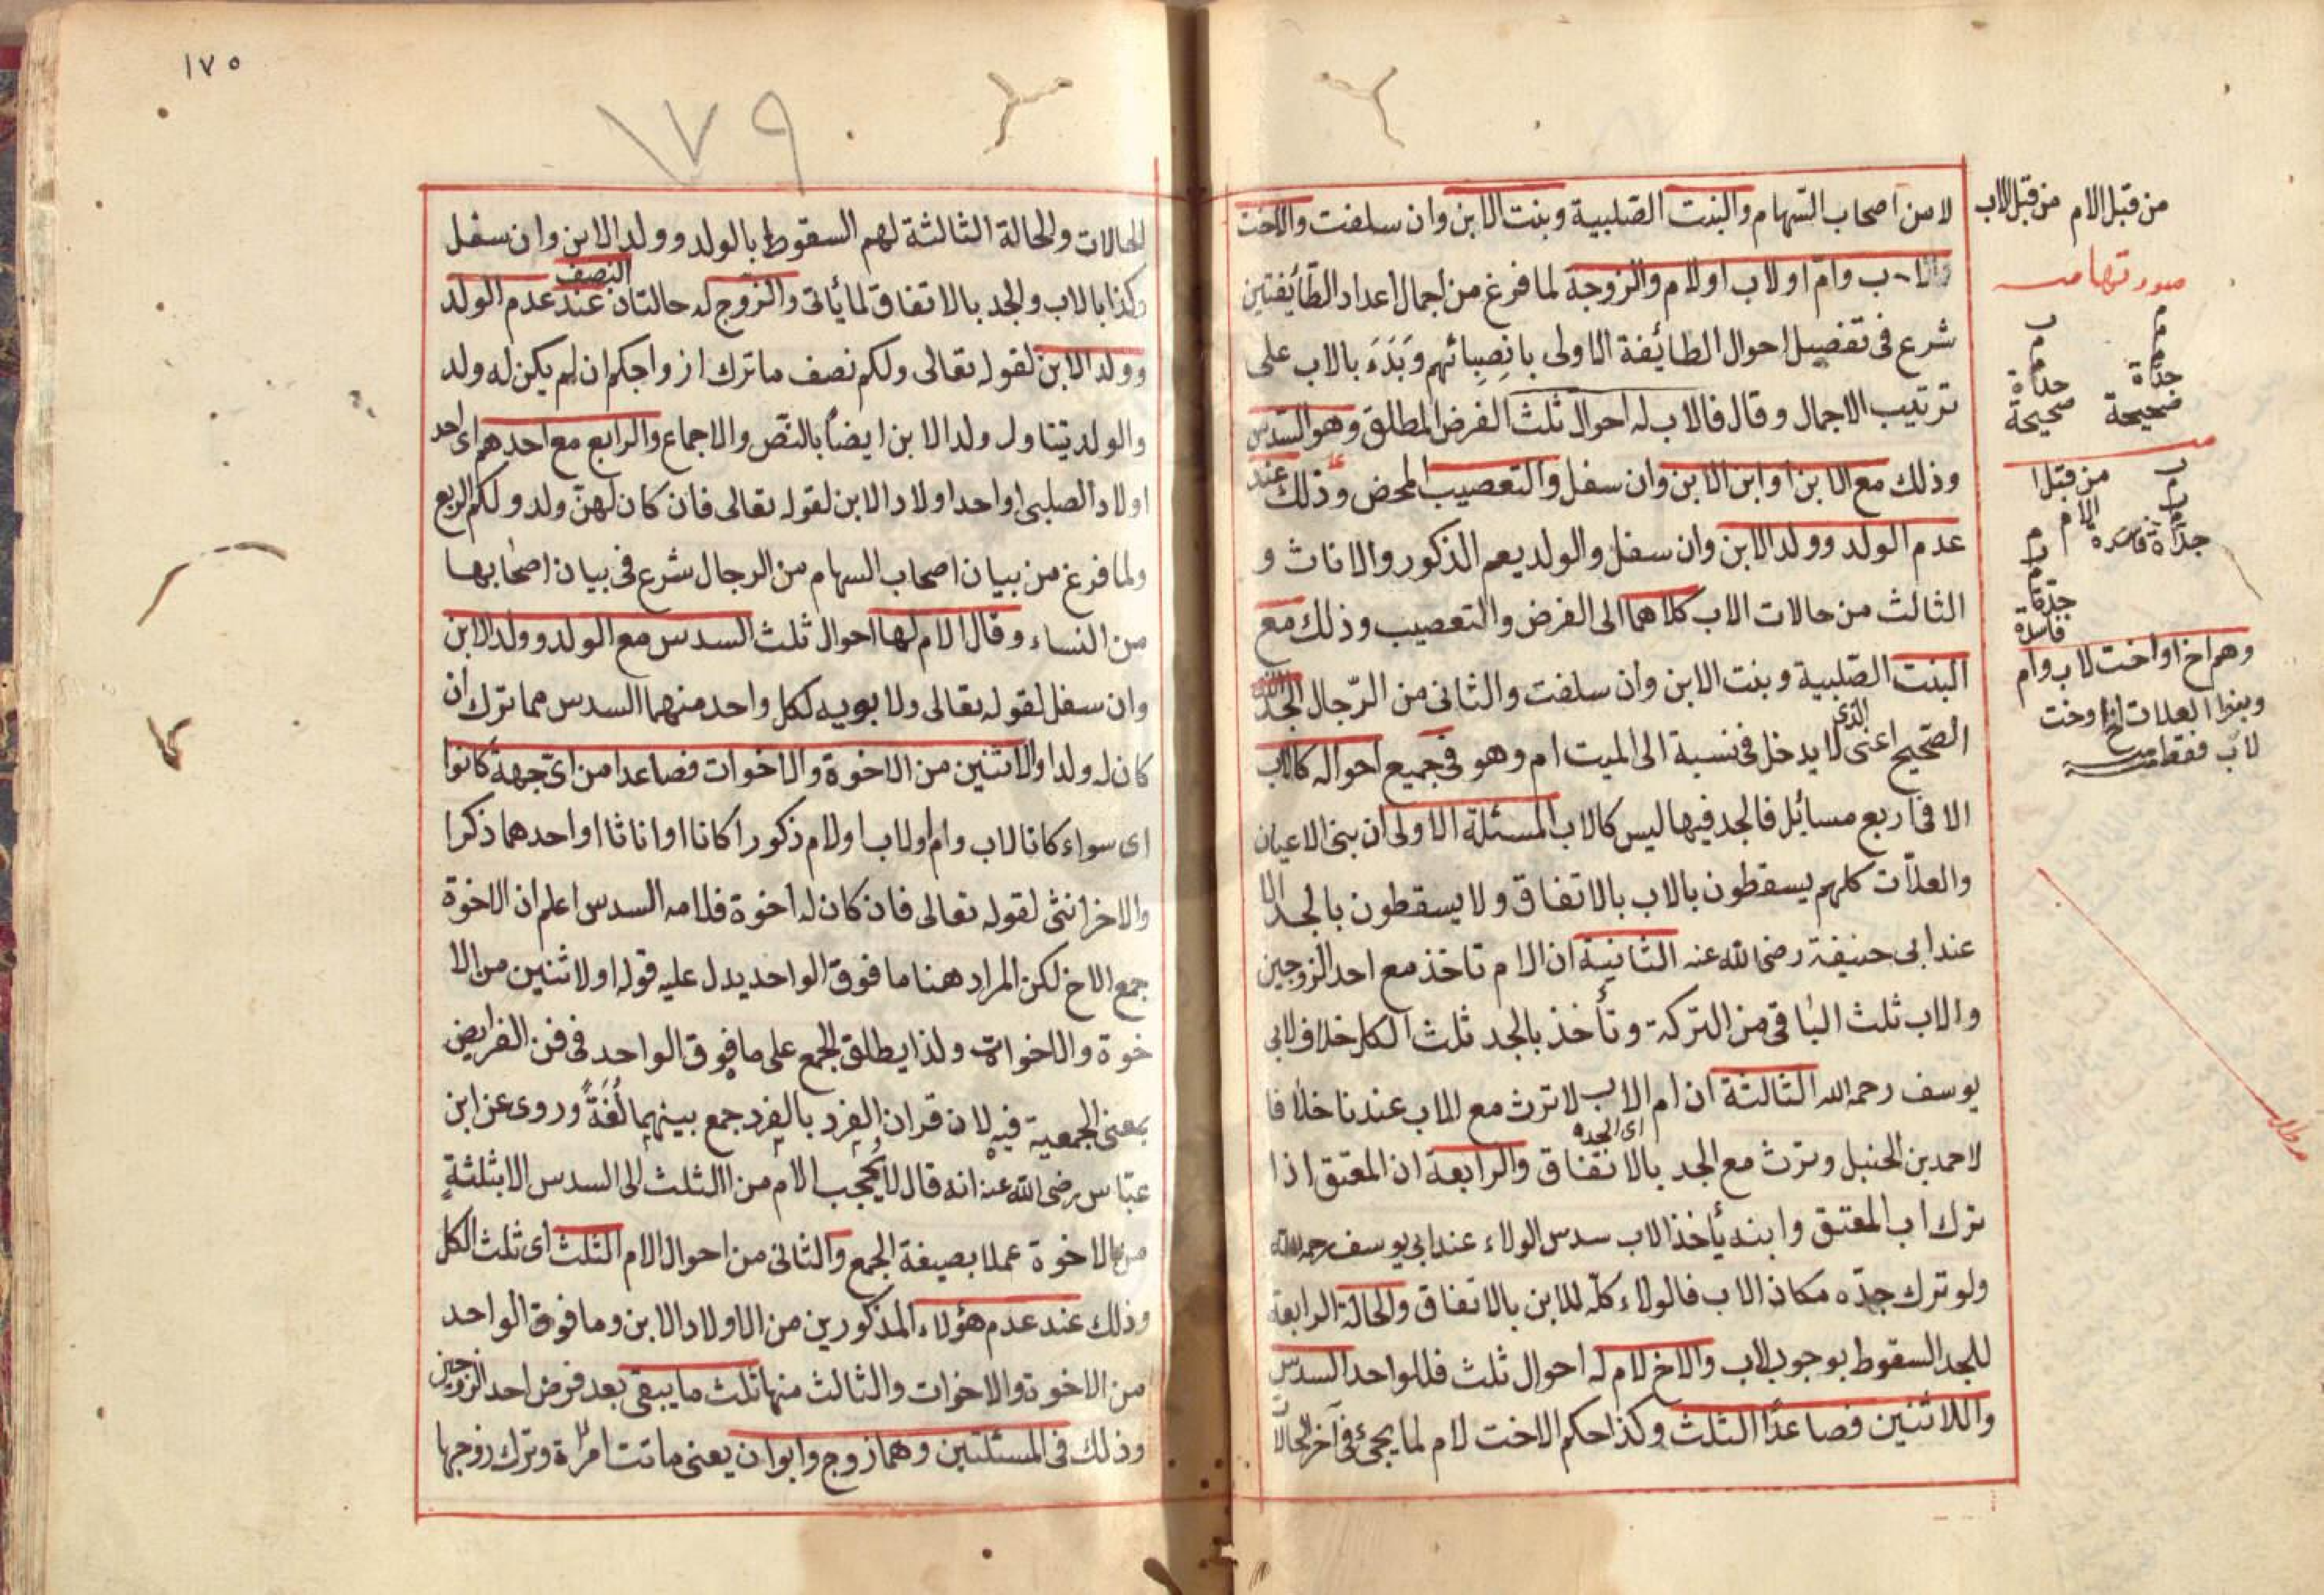 لا من اصحاب السّهام والبنت الصّلبية وبنت الابن وان سلفت والاخت
لاب وامّ او لاب او لام والزوجة لما فرغ من اجمال اعداد الطّائفتين
شرع فى تفصيل احوال الطائفة الاولى بانصبائهم وبَدَءَ بالاب على
ترتيب الاجمال وقال فالاب له احوال ثلث الفرض المطلق وهو السّدس
وذلك مع الابن او ابن الابن وان سفل والتعصيب المحض وذلك عند
عدم الولد وولد الابن وان سفل والولد يعم الذكور والاناث و
الثالث من حالات الاب كلاهما الى الفرض والتعصيب وذلك مع
البنت الصّلبية وبنت الابن وان سلفت والثانى من الرّجال الجدّ
الصّحيح اعنى الذى لا يدخل فى نسبة الى الميت ام وهو فى جميع احواله كالاب
الا فى اربع مسائل فالجد فيها ليس كالاب المسئلة الاولى ان بنى الاعيان
والعلاّت كلهم يسقطون بالاب بالاتفاق ولا يسقطون بالجد الا
عند ابى حنيفة رضى الله عنه الثانية ان الام تاخذ مع احد الزوجين
والاب ثلث الباقى من التركة وتأخذ بالجد ثلث الكل خلاف لابى
يوسف رحمه الله الثالثة ان ام الاب لا ترث مع الاب عندنا خلافا
اى الجده
لاحمد بن الحنبل وترث مع الجد بالاتفاق والرابعة ان المعتق اذا
ترك اب المعتق وابنه يأخذ الاب سدس الولاء عند ابى يوسف رحمه الله
ولو ترك جدّه مكان الاب فالولاء كلّه للابن بالاتفاق والحالة الرابعة
للجد السقوط بوجوب لاب والاخ لام له احوال ثلث فللواحد السدس
واللاثنين فصاعدًا الثلث وكذا حكم الاخت لام لما يجئ فى آخر الحالا
من قبل الام من قبل الاب
صورتها منه
جدة صحيحة
جدة صحيحة
من قبل الام
جدة فاسدة
جدة فاسدة
وهم اخ او اخت لاب وام
وبنوا العلات اخ او خت
لاب فقط منه
١٧٥
١٧٩
الحالات والحالة الثالثة لهم السقوط بالولد وولد الابن وان سفل
وكذا بالاب والجد بالاتفاق لما يأتى والزّوج له حالتان النصف عند عدم الولد
وولد الابن لقوله تعالى ولكم نصف ما ترك ازواجكم ان لم يكن له ولد
والولد يتناول ولد الابن ايضًا بالنصّ والاجماع والرابع مع احدهم اى احد
اولاد الصلبى او احد اولاد الابن لقوله تعالى فان كان لهنّ ولد ولكم الربع
ولما فرغ من بيان اصحاب السهام من الرجال شرع فى بيان اصحابها
من النساء وقال الام لها احوال ثلث السدس مع الولد وولد الابن
وان سفل لقوله تعالى ولابويه لكل واحد منهما السدس مما ترك ان
كان له ولد او الاثنين من الاخوة والاخوات فصاعدا من اىّ جهة كانوا
اى سواء كانا لاب وام او لاب او لام ذكورا كانا او اناثا او احدهما ذكرا
والاخر انثى لقوله تعالى فان كان له اخوة فلامه السدس اعلم ان الاخوة
جمع الاخ لكن المراد هنا ما فوق الواحد يدل عليه قوله او لاثنين من الا
خوة والاخوات ولذا يطلق الجمع على ما فوق الواحد فى فن الفرايض
بمعنى الجمعية فيه لان قران الفرد بالفرد جمع بينهما لُغَةً وروى عن ابن
عبّاس رضى الله عنه انه قال لا يُحجب الام من الثلث الى السدس الا بثلثةٍ
من الاخوة عملا بصيغة الجمع والثانى من احوال الام الثلث اى ثلث الكل
وذلك عند عدم هؤلاء المذكورين من الاولاد الابن وما فوق الواحد
من الاخوة والاخوات والثالث منها ثلث ما يبقى بعد فرض احد الزوجين
وذلك فى المسئلتين وهما زوج وابوان يعنى ماتت امرأة وترك زوجها